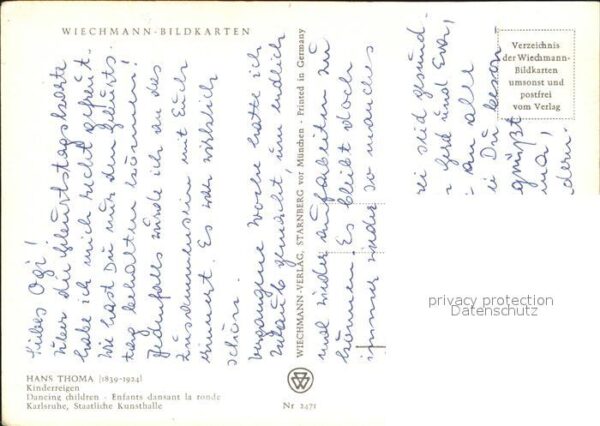 WIECHMANN-BILDKARTEN
Liebes Ogi!
Über die Geburtstagskarte
habe ich mich recht gefreut.
Wie hast Du nur den Geburts-
tag behalten können!
Jedenfalls wurde ich an das
Zusammensein mit Euch
erinnert. Es war wirklich
schön.
Vergangene Woche hatte ich
Urlaub gemacht, um endlich
mal wieder aufarbeiten zu
können. Es bleibt doch
immer wieder so manches
sei gesund
Gerd und Eva!
an alle
Du
grüßt
WIECHMANN-VERLAG, STARNBERG vor München - Printed in Germany
Verzeichnis
der Wiechmann-
Bildkarten
umsonst und
postfrei
vom Verlag
privacy protection
Datenschutz
HANS THOMA [1839-1924]
Kinderreigen
Dancing children - Enfants dansant la ronde
Karlsruhe, Staatliche Kunsthalle
Nr 2471